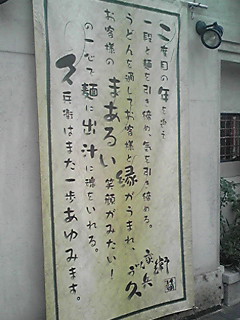 二度目の年を迎え
一段と麺を引き締め、気を引き締める。
うどんを通してお客様と縁がうまれ、
お客様のまあるい笑顔がみたい！
の一心で麺に出汁に魂をいれる。
久兵衛はまた一歩あゆみます。
久兵衛